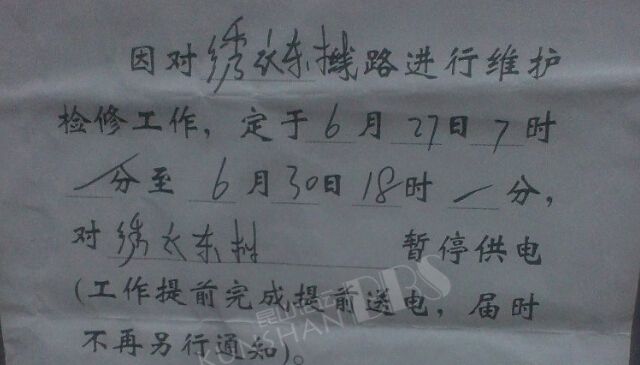 因对绣衣东村线路进行维护
检修工作,定于6月27日7时
/分至6月30日18时/分,
对绣衣东村 暂停供电
(工作提前完成提前送电,届时
不再另行通知)。
KUNSHAN BBS